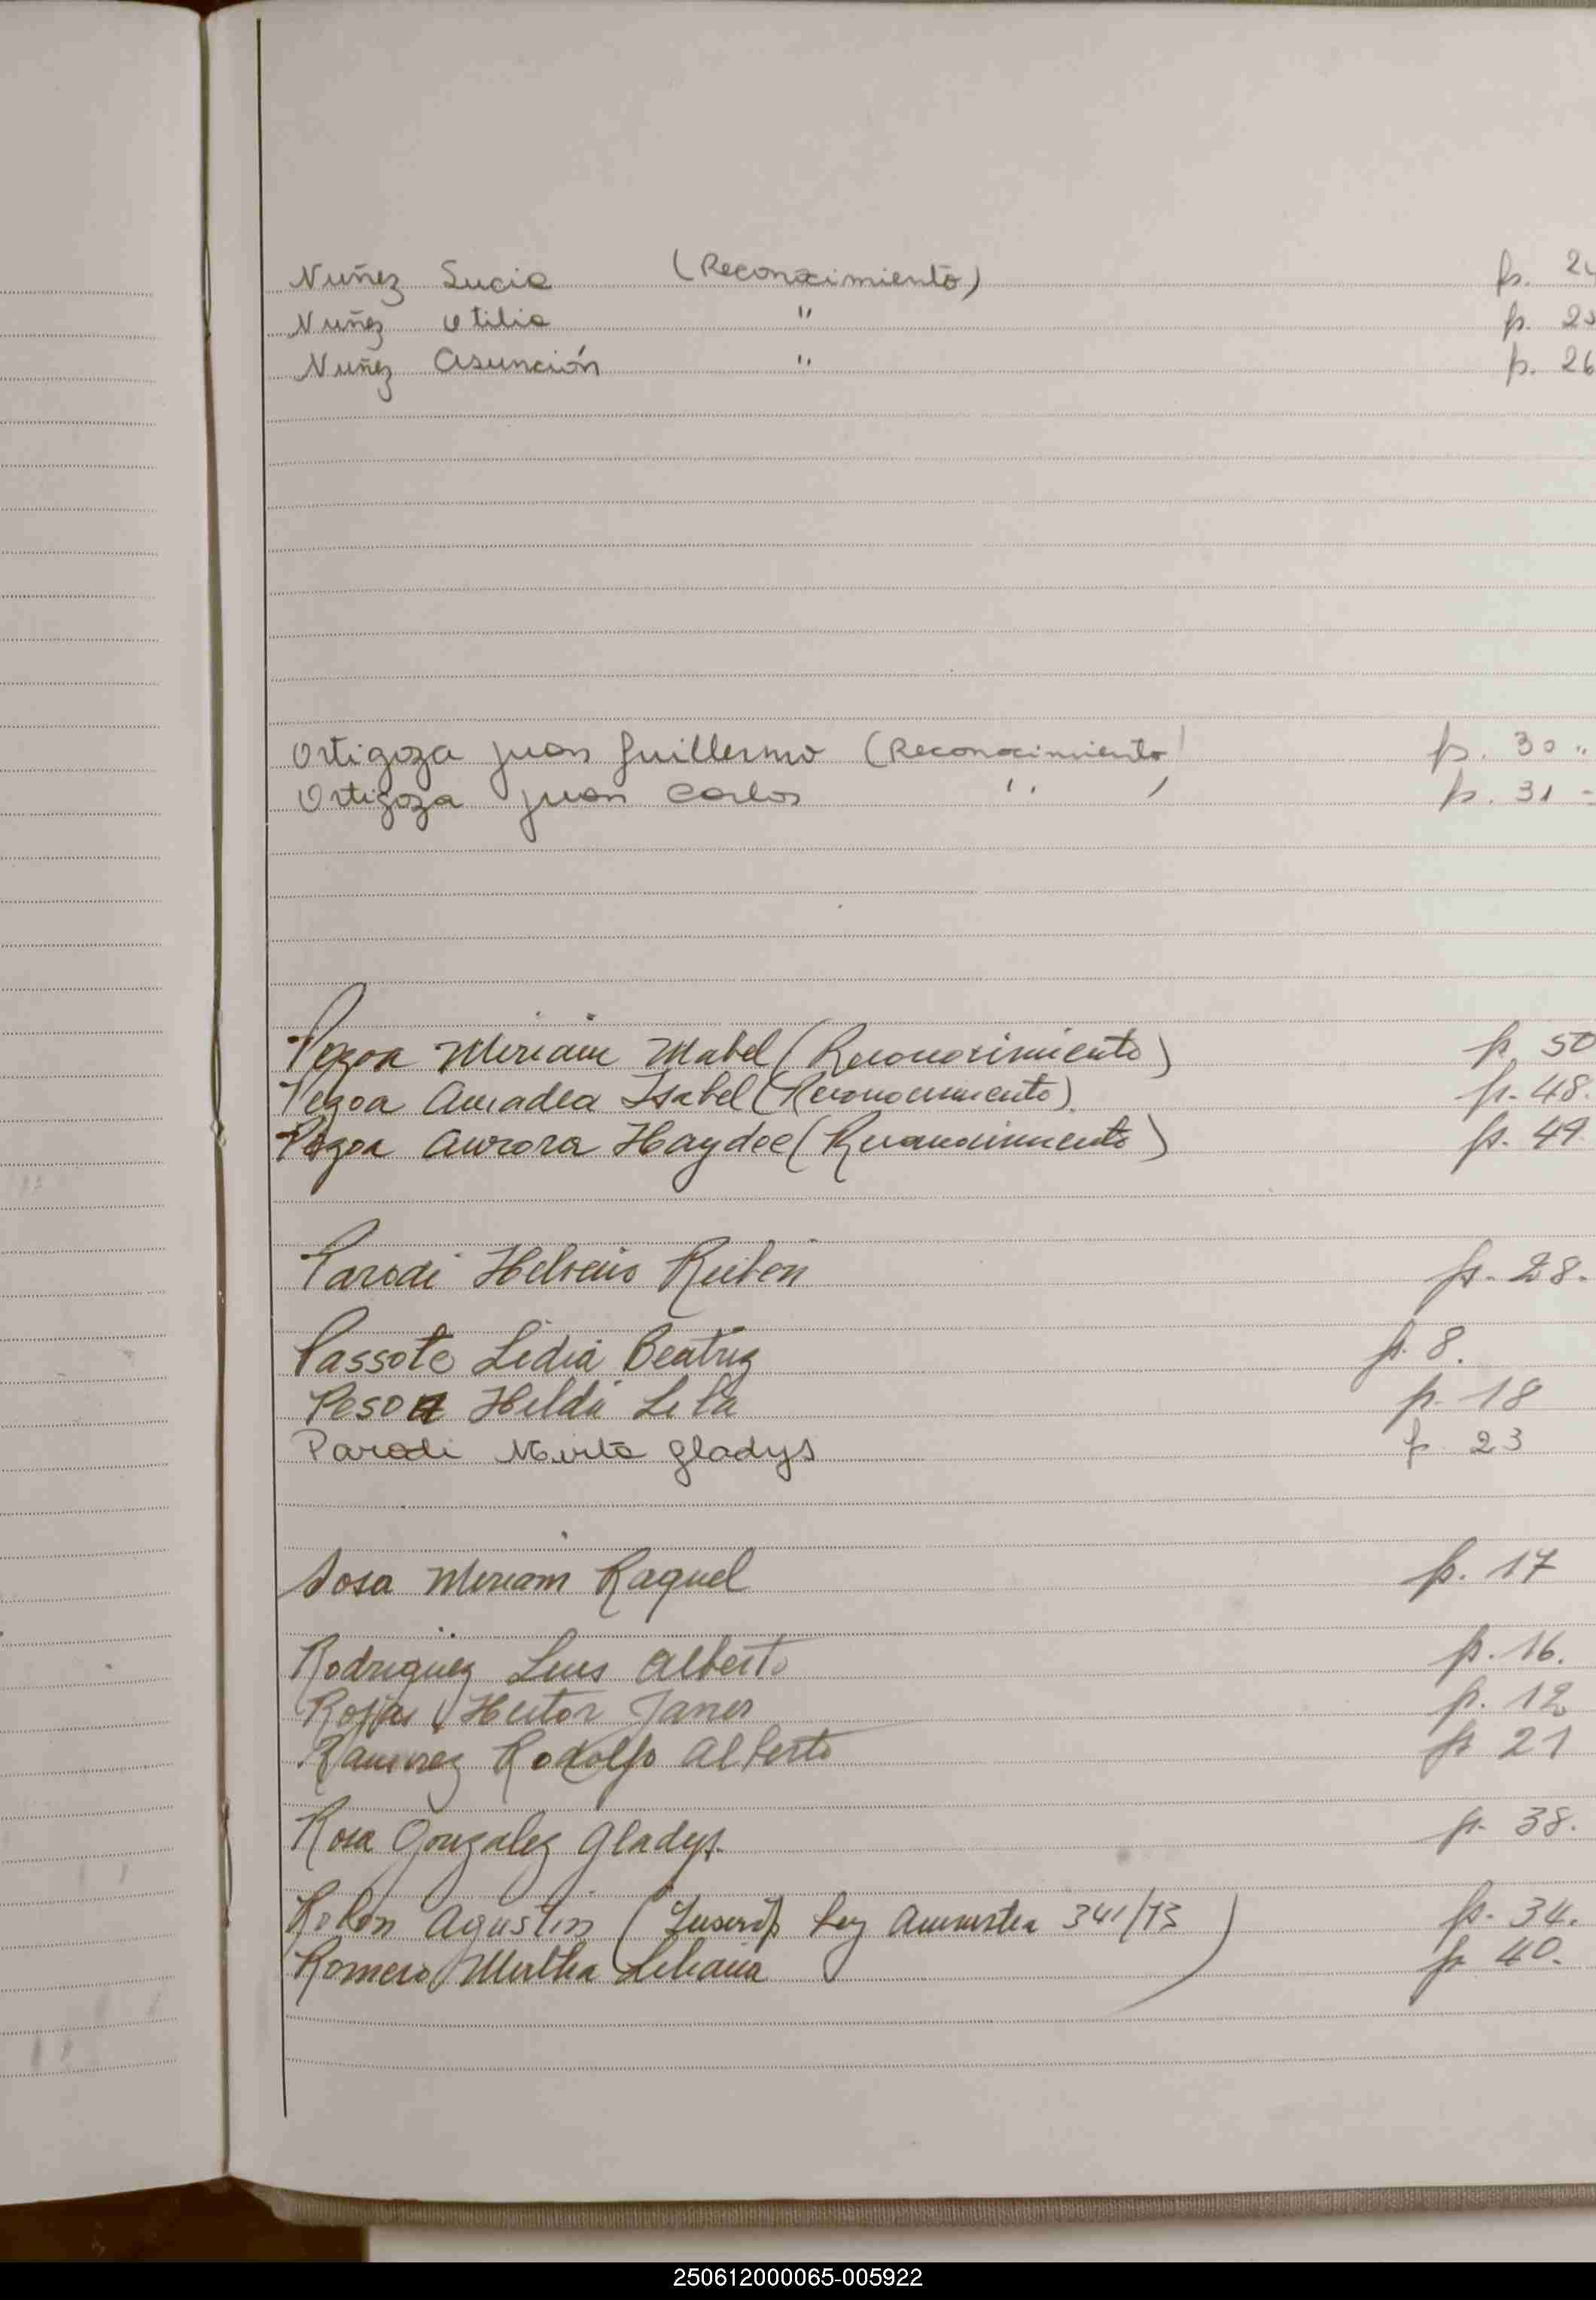 Nuñez Lucia (Reconocimiento) p. 24
Nuñez Otilia " p. 25
Nuñez Asunción " p. 26
Ortigoza Juan Guillermo (Reconocimiento) p. 30
Ortigoza Juan Carlos " p. 31
Pezoa Miriam Mabel (Reconocimiento) p. 50
Pezoa Amadea Isabel (Reconocimiento) p. 48.
Pezoa Aurora Haydee (Reconocimiento) p. 49.
Parodi Ruben p. 28.
Passote Lidia Beatriz p. 8.
Pesoa Hilda p. 18
Parodi Mirta Gladys p. 23
Sosa Miriam Raquel p. 17
Rodriguez Luis Alberto p. 16.
Rojas Hector Javier p. 12
Ramirez Rodolfo Alberto p. 21
Rosa Gonzalez Gladys. p. 38.
Rolon Agustin (Inscrip Ley Amnistia 341/73) p. 34.
Romero Mirtha Liliana p. 40.
250612000065-005922